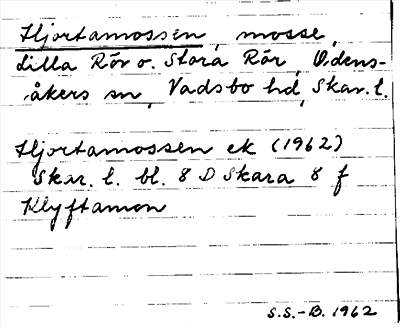 Hjortamossen, mosse,
Lilla Rör o. Stora Rör, Odens-
åkers sn, Vadsbo hd, Skar. l.
Hjortamossen ek (1962)
Skar. l. bl. 8 D Skara 8 f
Klyftamon
S.S.-B. 1962